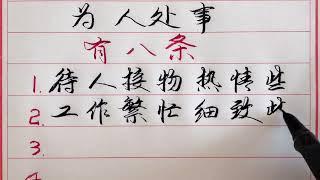 为人处事
有八条
1. 待人接物热情些
2. 工作繁忙细致些
3.